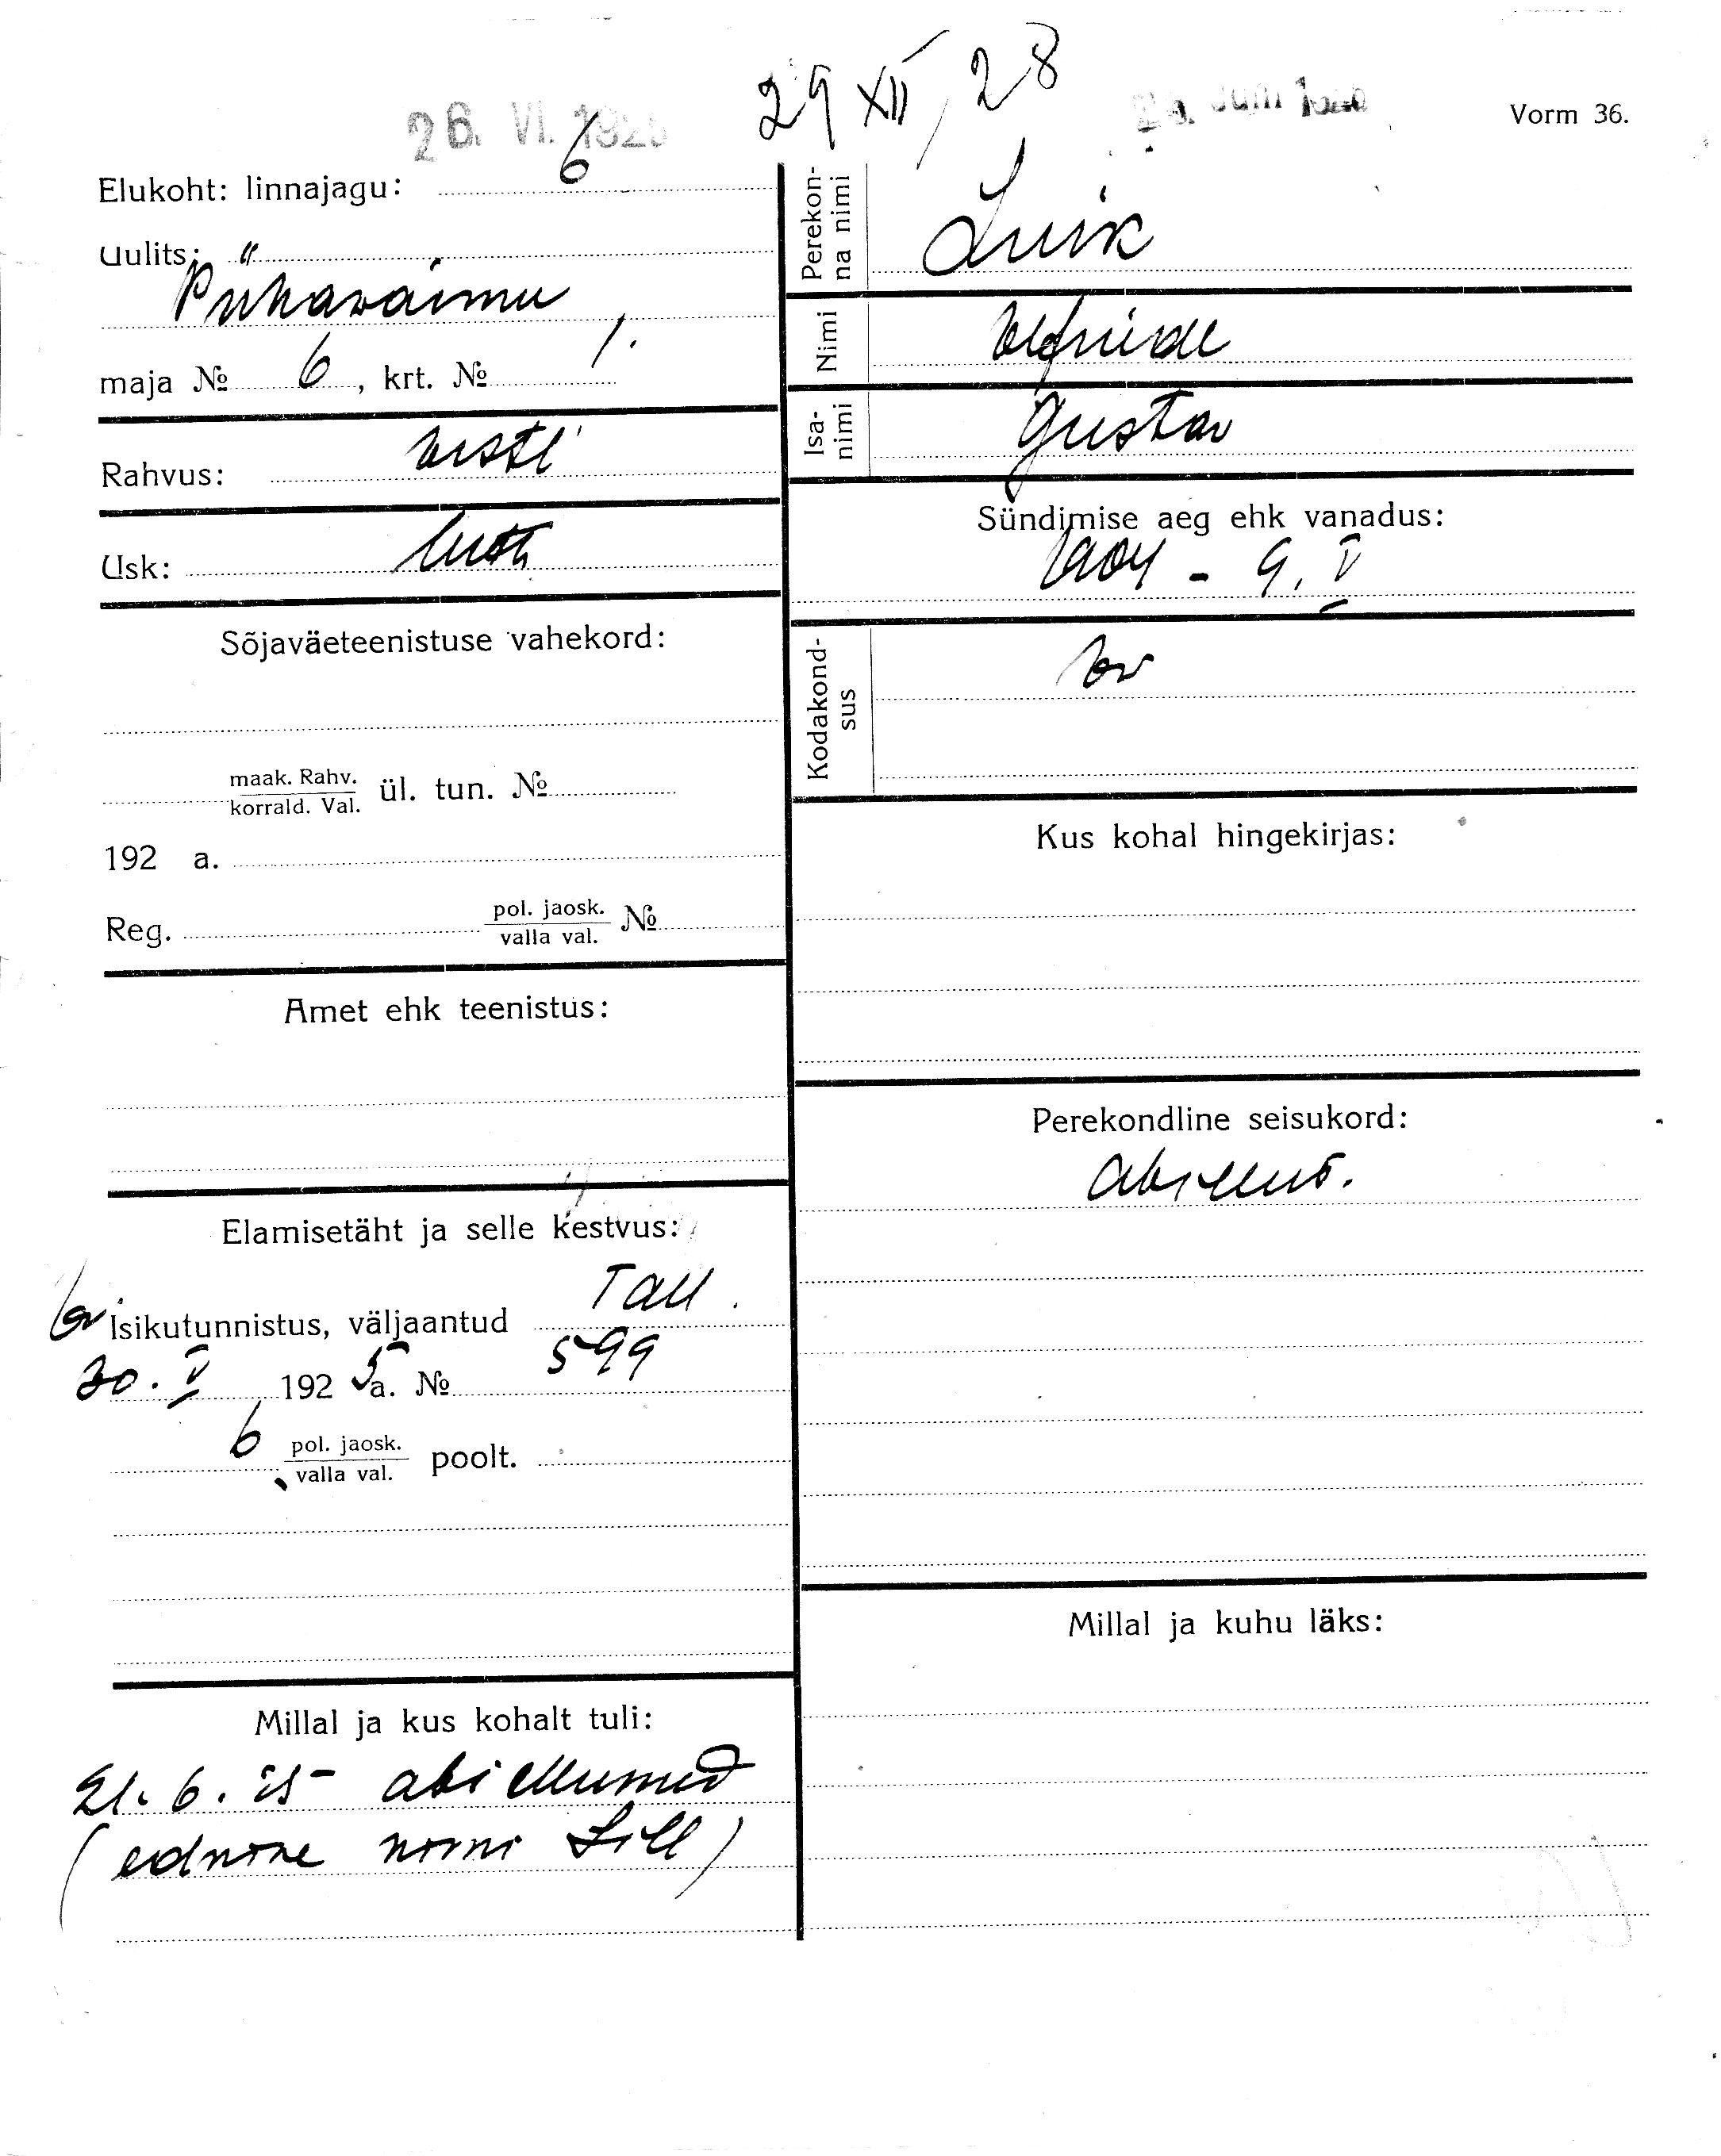 29 XII, 28
26. VI. 1925
Vorm 36.
Elukoht: linnajagu: 6
Uulits:
Pühavaimu
maja № 6, krt. № 1.
Rahvus: eesti
Usk: luth
Sõjaväeteenistuse vahekord:
maak. Rahv.
korrald. Val. ül. tun. №
192 a.
Reg. pol. jaosk.
valla val. №
Amet ehk teenistus:
Elamisetäht ja selle kestvus:
Isikutunnistus, väljaantud Tall.
30. V 192 5 a. № 599
6 pol. jaosk.
valla val. poolt.
Millal ja kus kohalt tuli:
21. 6. 25 abiellumud
(endine nimi Lill)
Perekon-
na nimi Luik
Nimi Elfriede
Isa-
nimi Gustav
Sündimise aeg ehk vanadus:
1904 - 9. V
Kodakond-
sus
Kus kohal hingekirjas:
Perekondline seisukord:
abielus.
Millal ja kuhu läks: